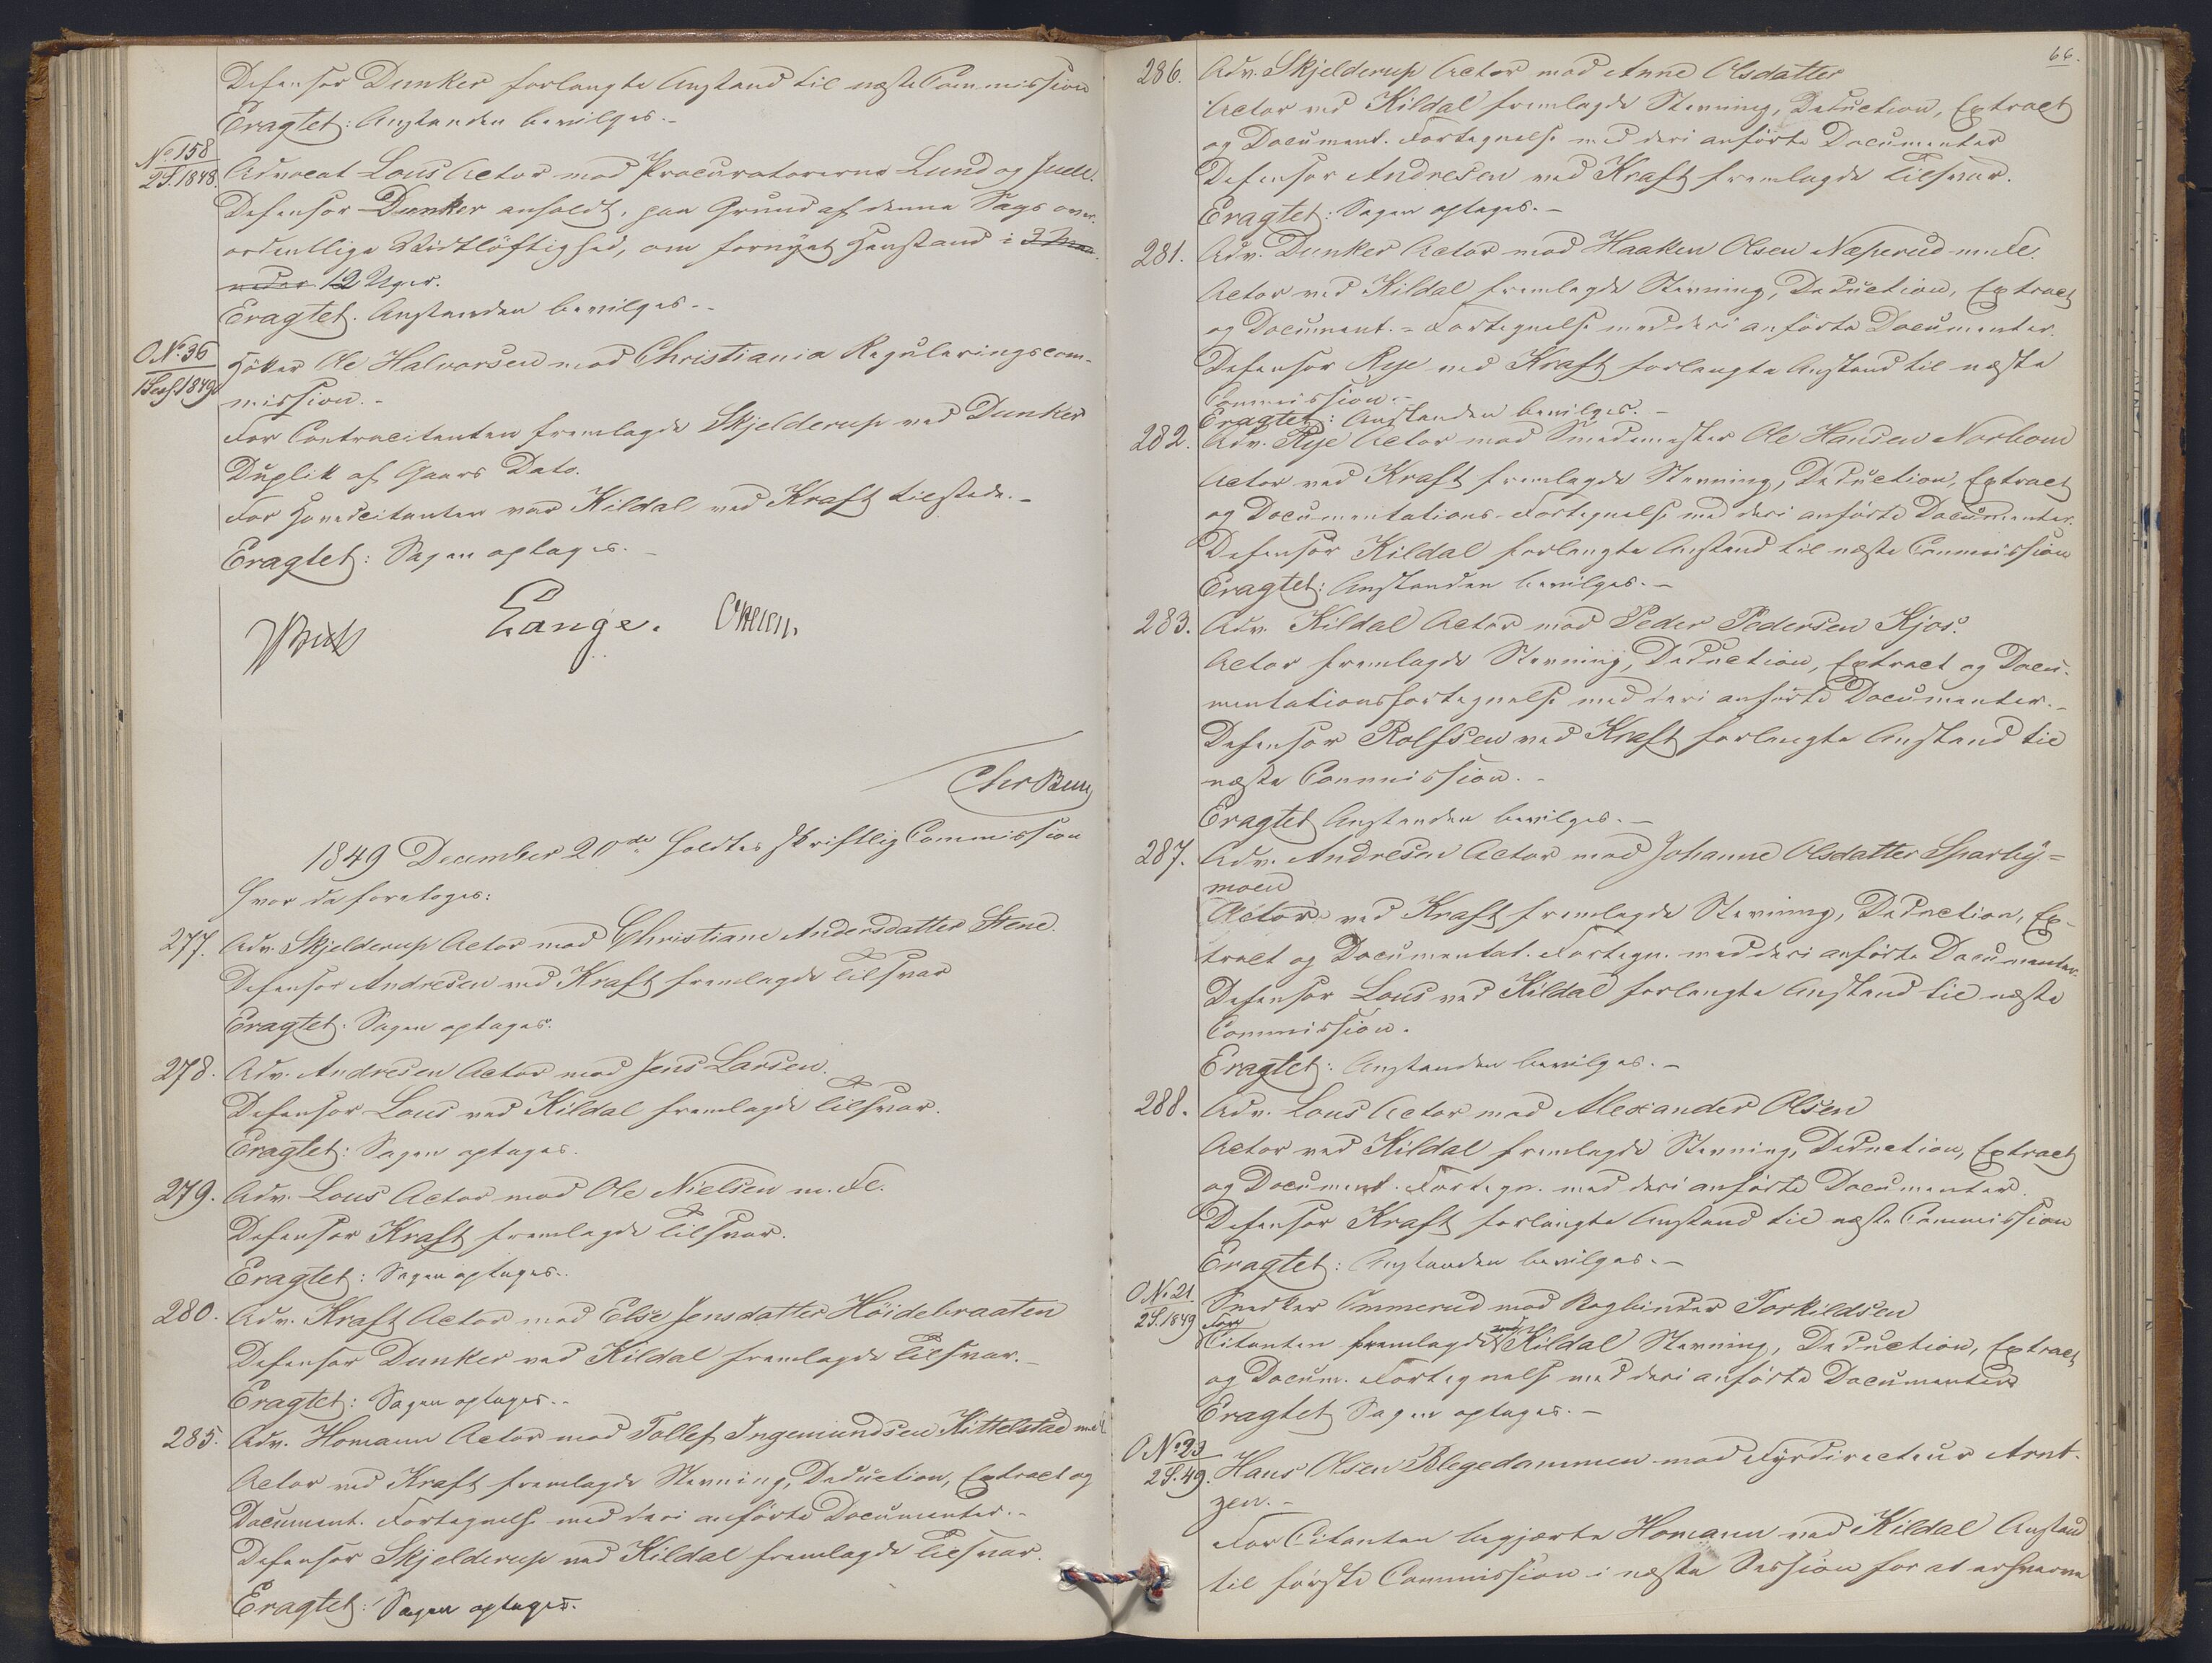 Defensor Dunker forlangte Anstand til næste Commission
Eragtet: Anstanden bevilges.-
No 158
2 S. 1848.
Advocat Lous Actor mod Procuratorerne Lund og Juell.
Defensor Dunker anholdt, paa Grund af denne Sags over-
ordentlige Vidtløftighed, om fornyet Henstand i 3 Maa-
neder 12 Uger.
Eragtet. Anstanden bevilges.-
O No 36
1 Sess. 1849
Høker Ole Halvorsen mod Christiania Reguleringscom-
mission.-
For Contracitanten fremlagde Skjelderup ved Dunker
Duplik af Gaars Dato.
For Hovedcitanten var Kildal ved Kraft tilstede.-
Eragtet: Sagen optages.-
Lange.
1849 December 20de holdtes skriftlig Commission
hvor da foretoges:
277. Adv. Skjelderup Actor mod Christiane Andersdatter Stene.
Defensor Andresen ved Kraft fremlagde Tilsvar
Eragtet. Sagen optages.
278. Adv. Andresen Actor mod Jens Larsen.
Defensor Lous ved Kildal fremlagde Tilsvar.
Eragtet: Sagen optages.
279. Adv. Lous Actor mod Ole Nielsen m. Fl.
Defensor Kraft fremlagde Tilsvar.
Eragtet: Sagen optages..
280. Adv. Kraft Actor mod Else Jensdatter Höidebraaten
Defensor Dunker ved Kildal fremlagde Tilsvar.-
Eragtet: Sagen optages..
285. Adv. Homann Actor mod Tollef Ingemundsen Kittelstad
Actor ved Kraft fremlagde Stevning, Deduction, Extract og
Document. Fortegnelse med deri anførte Documenter.-
Defensor Skjelderup ved Kildal fremlagde Tilsvar.
Eragtet: Sagen optages.
66.
286. Adv. Skjelderup Actor mod Anne Olsdatter
Actor ved Kildal fremlagde Stevning, Deduction, Extract
og Document. Fortegnelse med deri anførte Documenter
Defensor Andresen ved Kraft fremlagde Tilsvar.
Eragtet: Sagen optages.-
281. Adv. Dunker Actor mod Haaken Olsen Næperud m. Fl.
Actor ved Kildal fremlagde Stevning, Deduction, Extract
og Document.- Fortegnelse med deri anførte Documenter.
Defensor Rye ved Kraft forlangte Anstand til næste
Commission.-
Eragtet: Anstanden bevilges.-
282. Adv. Rye Actor mod Smedemester Ole Hansen Norbom
Actor ved Kraft fremlagde Stevning, Deduction, Extract
og Documentations-Fortegnelse med deri anførte Documenter.
Defensor Kildal forlangte Anstand til næste Commission
Eragtet: Anstanden bevilges.-
283. Adv. Kildal Actor mod Peder Pedersen Kjos.
Actor fremlagde Stevning, Deduction, Extract og Docu-
mentationsfortegnelse med deri anførte Documenter.-
Defensor Rolfsen ved Kraft forlangte Anstand til
næste Commission.-
Eragtet Anstanden bevilges.-
287. Adv. Andresen Actor mod Johanne Olsdatter Sparby=
moen
Actor ved Kraft fremlagde Stevning, Deduction, Ex-
tract og Documentat. Fortegn. med deri anførte Documenter.
Defensor Lous ved Kildal forlangte Anstand til næste
Commission.
Eragtet: Anstanden bevilges.-
288. Adv. Lous Actor mod Alexander Olsen
Actor ved Kildal fremlagde Stevning, Deduction, Extract
og Document. Fortegn. med deri anførte Documenter.
Defensor Kraft forlangte Anstand til næste Commission
Eragtet: Anstanden bevilges.-
O No 21
2 S. 1849
Snedker Ommerud mod Bogbinder Torkildsen
For
Citanten fremlagde ved Kildal Stevning, Deduction, Extract
og Docum. Fortegnelse med deri anførte Documenter
Eragtet Sagen optages.-
O No 23
2 S. 49.
Hans Olsen Blegedammen mod Fyrdirecteur Arnt-
zen.-
For Citanten begjærte Homann ved Kildal Anstand
til første Commission i næste Session for at erhverve